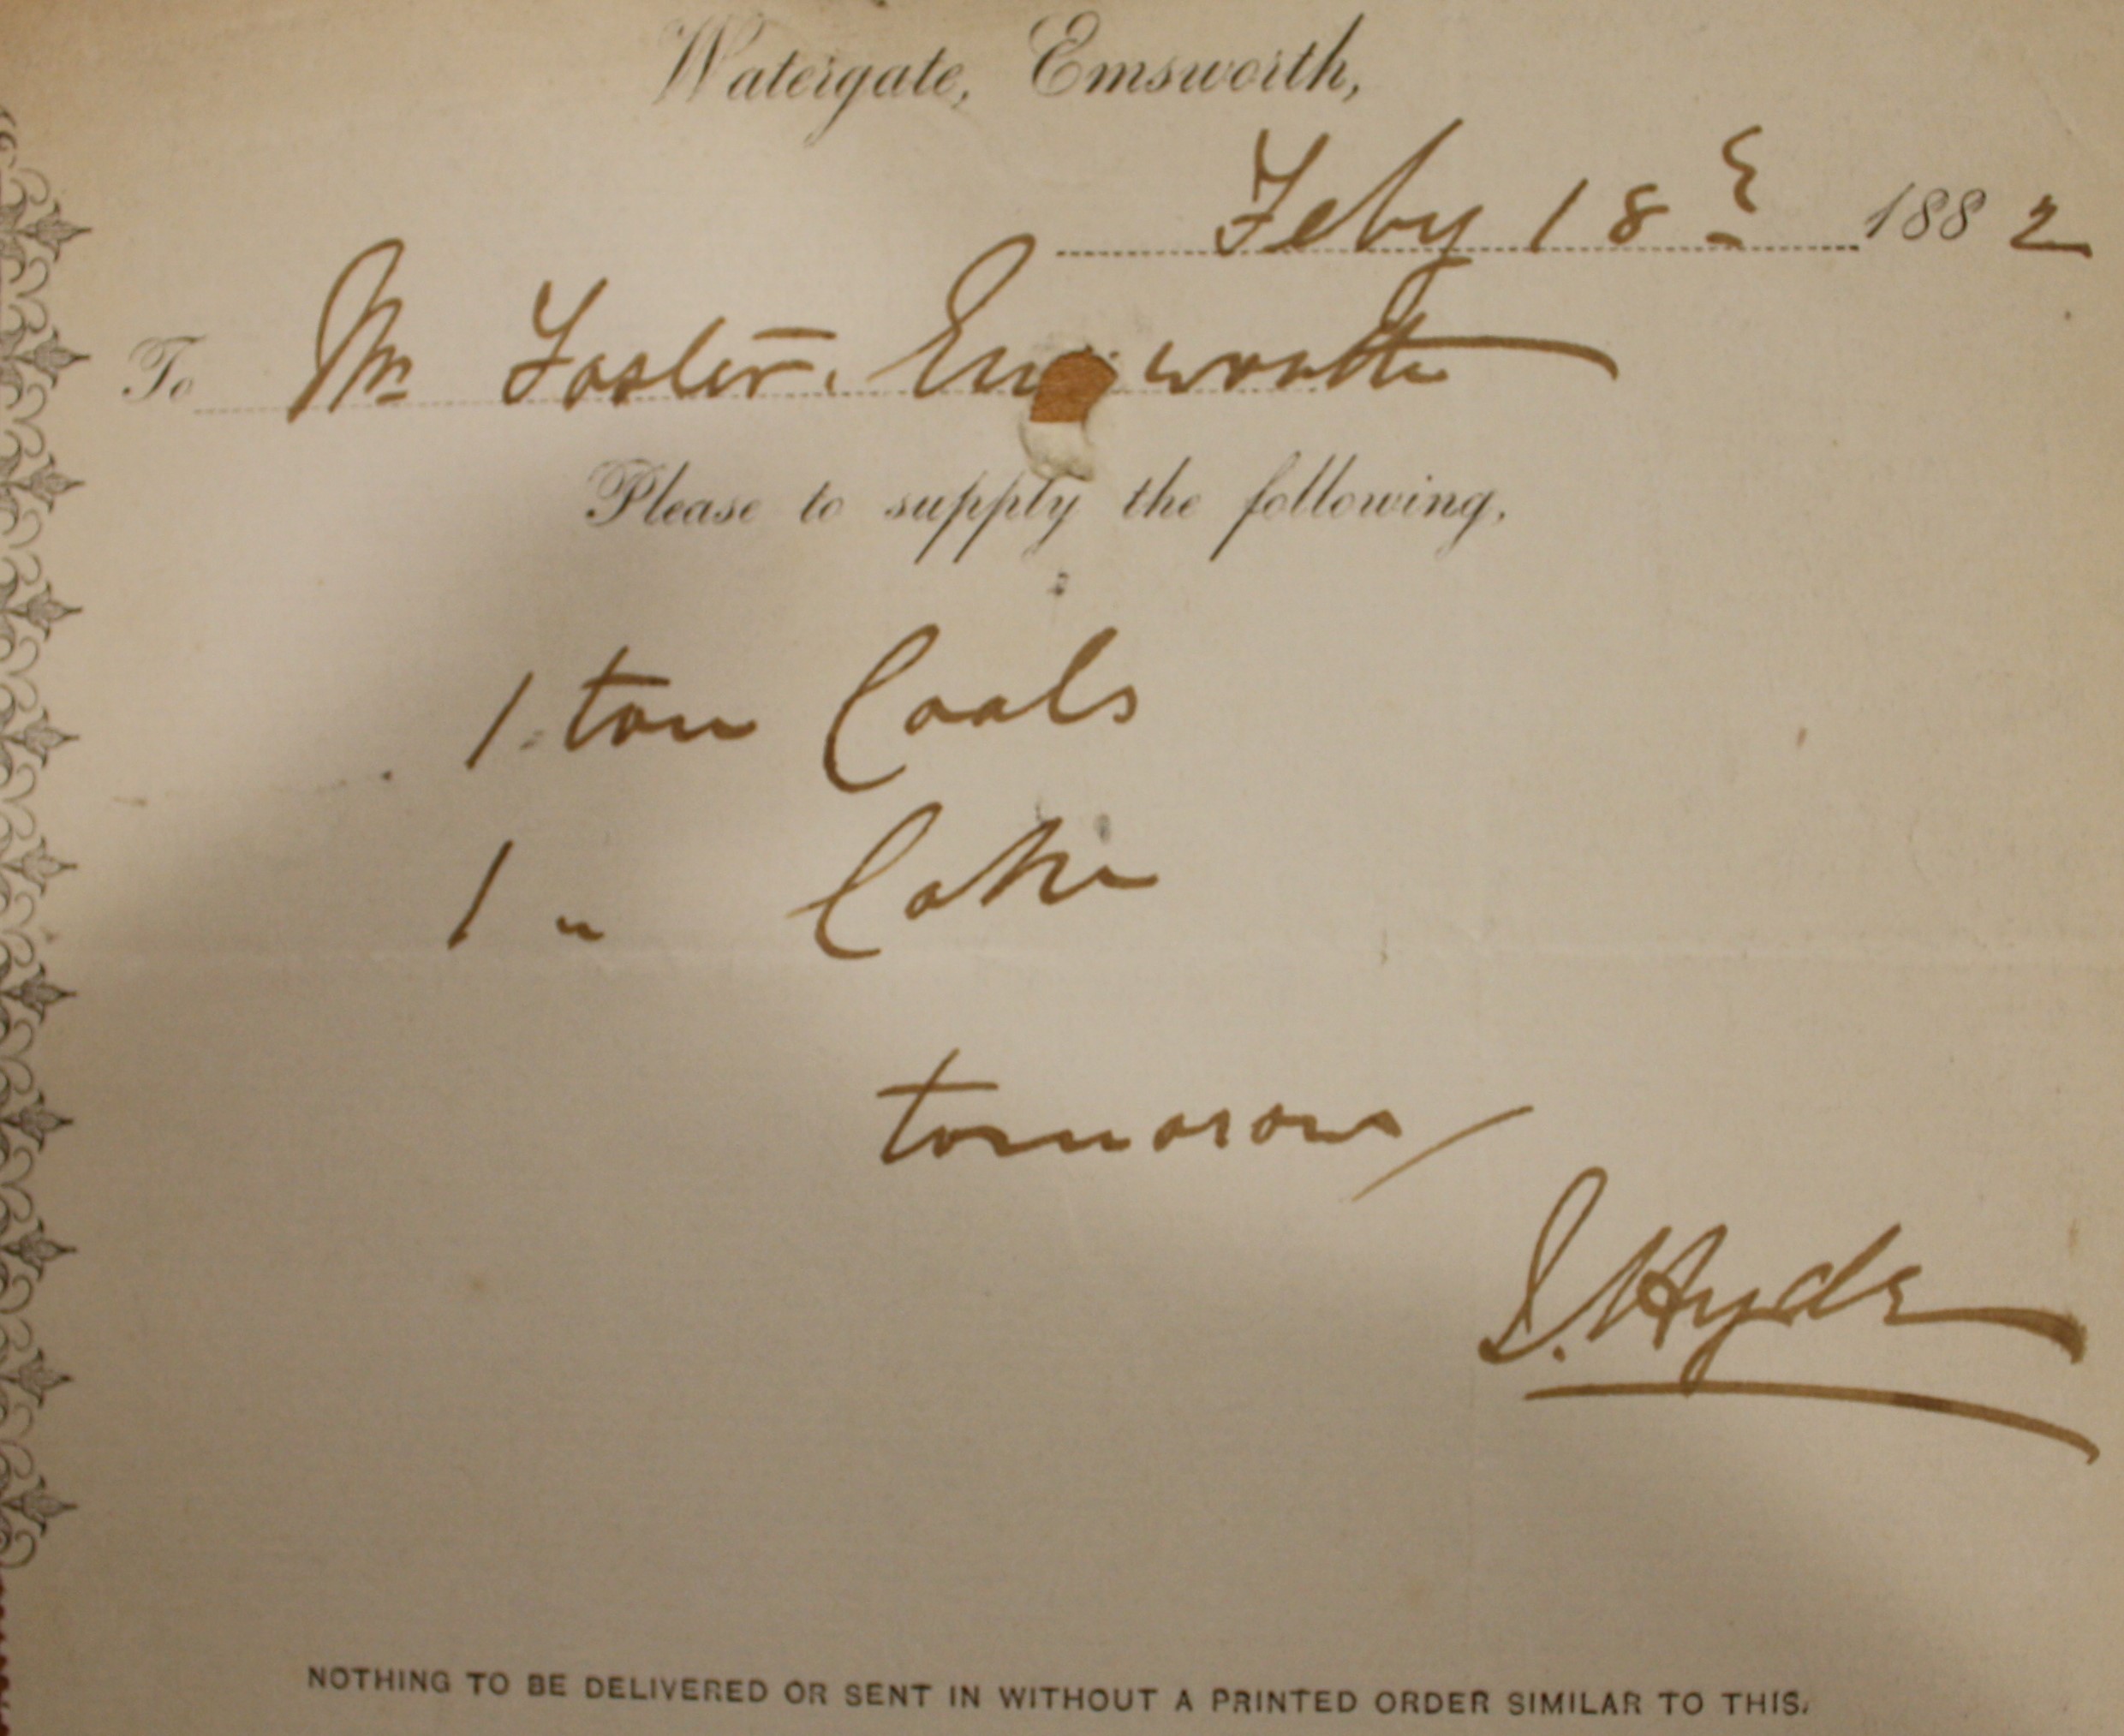 Watergate, Emsworth,
Feby 18th 1882
To Mr Foster. Emsworth
Please to supply the following,
1 ton Coals
1 " Coke
tomorow
S. Hyde
NOTHING TO BE DELIVERED OR SENT IN WITHOUT A PRINTED ORDER SIMILAR TO THIS.